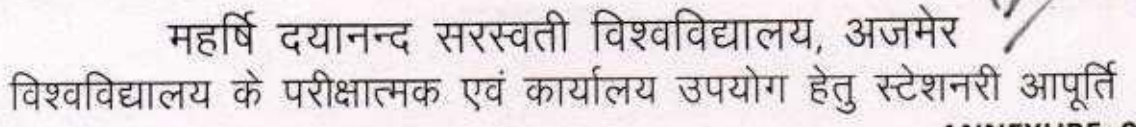 महर्षि दयानन्द सरस्वती विश्वविद्यालय, अजमेर
विश्वविद्यालय के परीक्षात्मक एवं कार्यालय उपयोग हेतु स्टेशनरी आपूर्ति